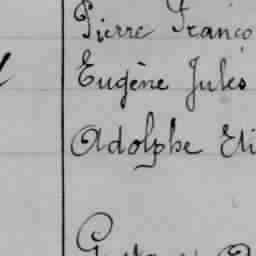 Pierre Franço
Eugène Jules
Adolphe Eli